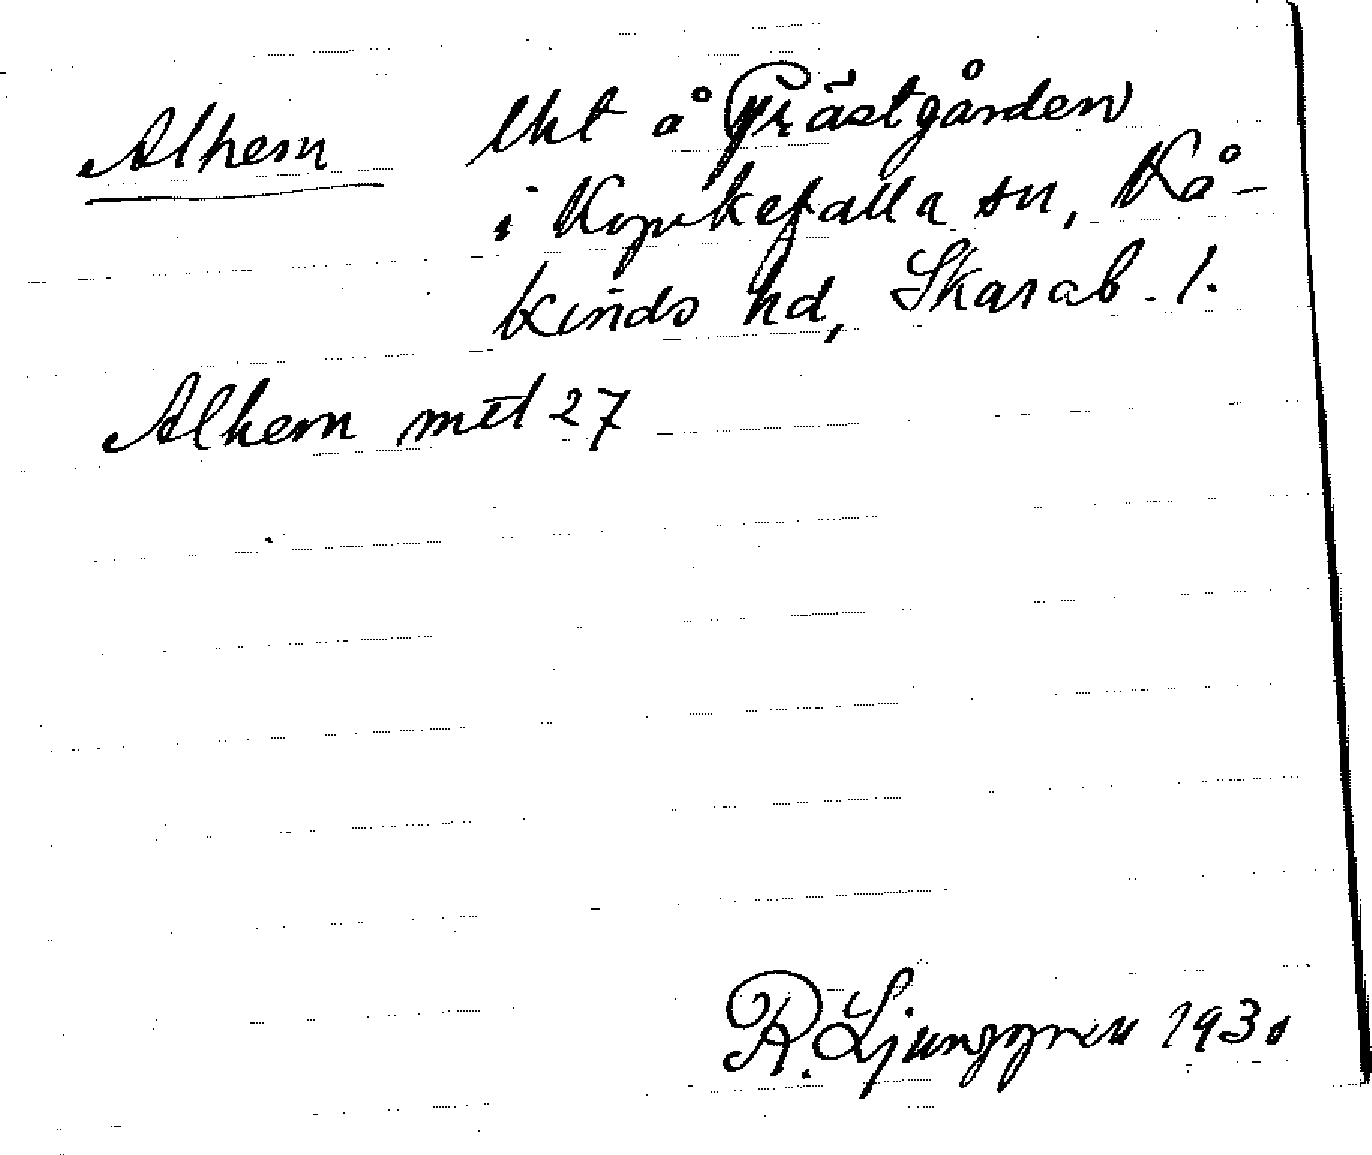 Alhem lht å Prästgården
i Kyrkefalla sn, Kå-
kinds hd, Skarab. l.
Alhem mtl 27
R. Ljunggren 1930